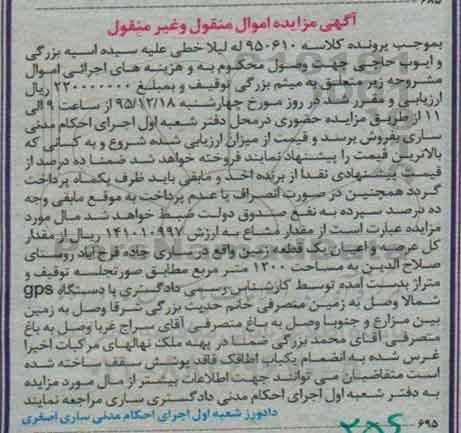 آگهی مزایده اموال منقول وغیر منقول
بموجب پرونده کلاسه ۹۵۰۶۱۰ له لیلا خطی علیه سیده اسیه بزرگی
و ایوب حاجی جهت وصول محکوم به و هزینه های اجرائی اموال
مشروحه زیر متعلق به میثم بزرگی توقیف و بمبلغ ۲۲۰۰۰۰۰۰۰ ریال
ارزیابی و مقرر شد در روز مورخ چهارشنبه ۹۵/۱۲/۱۸ از ساعت ۹ الی
۱۱ از طریق مزایده حضوری درمحل دفتر شعبه اول اجرای احکام مدنی
ساری بفروش برسد و قیمت از میزان ارزیابی شده شروع و به کسانی که
بالاترین قیمت را پیشنهاد نمایند فروخته خواهد شد ضمنا ده درصد از
قیمت پیشنهادی نقدا از برنده اخذ و مابقی باید ظرف یکماه پرداخت
گردد همچنین در صورت انصراف یا عدم پرداخت به موقع مابقی وجه
ده درصد سپرده به نفع صندوق دولت ضبط خواهد شد مال مورد
مزایده عبارت است از مقدار مشاع به ارزش ۱۴۱۰۱۰۹۹۷ ریال از مقدار
کل عرصه و اعیان یک قطعه زمین واقع در ساری جاده فرح آباد روستای
صلاح الدین به مساحت ۱۲۰۰ متر مربع مطابق صورتجلسه توقیف و
متراژ بدست آمده توسط کارشناس رسمی دادگستری با دستگاه gps
شمالا وصل به زمین متصرفی خانم حدیث بزرگی شرقا وصل به زمین
بین مزارع و جنوبا وصل به باغ متصرفی آقای سراج غربا وصل به باغ
متصرفی آقای محمد بزرگی ضمنا در پهنه ملک نهالهای مرکبات اخیرا
غرس شده به انضمام یکباب اطاقک فاقد پوشش سقف ساخته شده
است متقاضیان می توانند جهت اطلاعات بیشتر از مال مورد مزایده
به دفتر شعبه اول اجرای احکام مدنی دادگستری ساری مراجعه نمایند
دادورز شعبه اول اجرای احکام مدنی ساری اصغری
۶۹۵